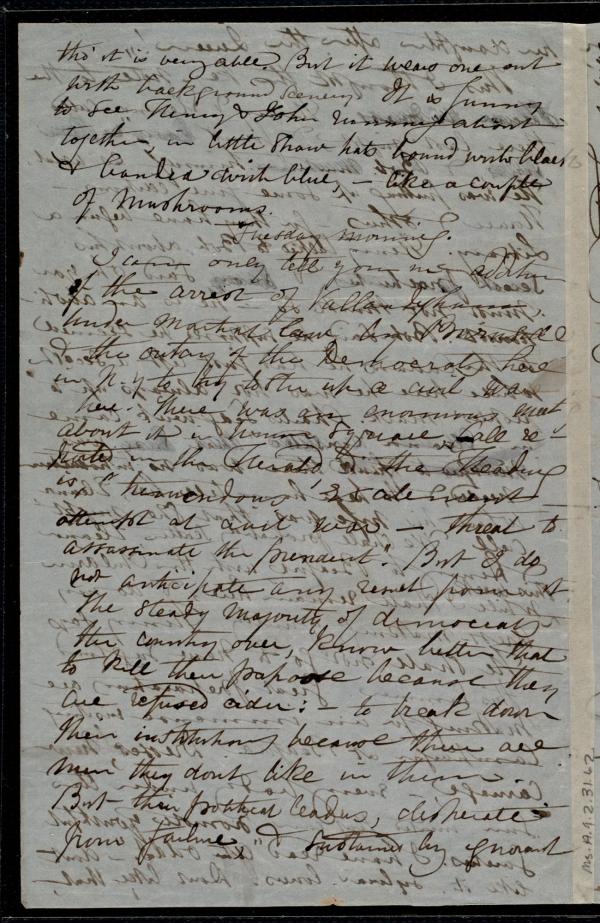 tho' it is very able. But it wears one out
with background scenery. It is funny
to see Henry & John running about
together, in little Straw hats bound with black
& banded with blue, – like a couple
of Mushrooms.
Tuesday morning.
I can only tell you my
of the arrest of Vallandigham
under Martial law by Burnside
& the outcry of the Democrats here
in N.Y. to try to stir up a civil war
here. There was an enormous meetg
about it in Union Square, (all re-
ported in the Herald) & the Heading
is "tremendous Excitement
attempt at civil war – threat to
assassinate the president". But I do
not anticipate any
The steady majority of democrats
the country over, know better than
to kill their papoose because they
are refused cider: – to break down
their institutions because there are
men they don't like in them.
But their political leaders, desperate
from failure, & sustained by ignorant
Ms. A.1.2.31.62